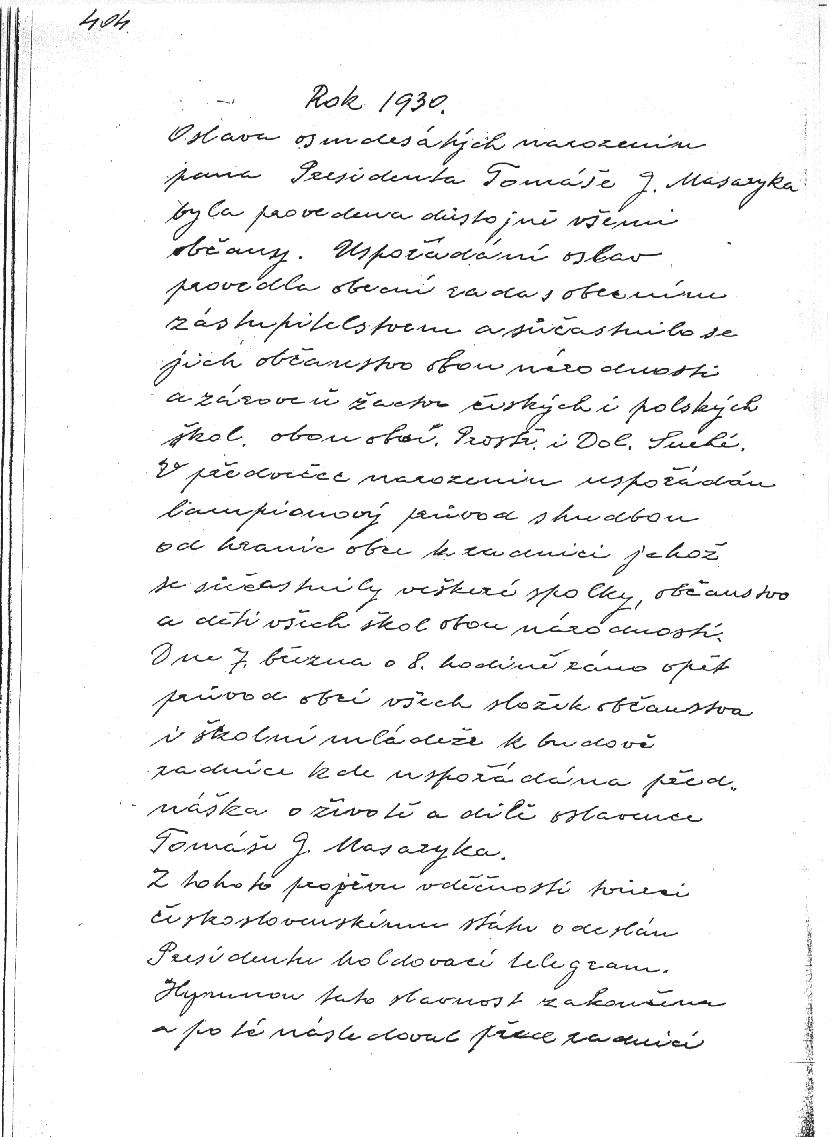 404.
Rok 1930.
Oslava osmdesátých narozenin
pana Presidenta Tomáše G. Masaryka
byla provedena důstojně všemi
občany. Uspořádání oslav
provedla obecní rada s obecním
zástupitelstvem a súčastnilo se
jich občanstvo obou národností
a zároveň žactvo českých i polských
škol. obou obcí. Prostř. i Dol. Suché.
V předvečer narozenin uspořádán
lampionový průvod s hudbou
od hranic obce k radnici jehož
se súčastnily veškeré spolky, občanstvo
a děti všech škol obou národností.
Dne 7. března o 8. hodině ráno opět
průvod obcí všech složek občanstva
i školní mládeže k budově
radnice kde uspořádána před-
náška o životě a díle oslavence
Tomáši G. Masaryka.
Z tohoto projevu vděčnosti vůči
československému státu odeslán
Presidentu holdovací telegram.
Hymnou tato slavnost zakončena
a po té následoval před radnicí